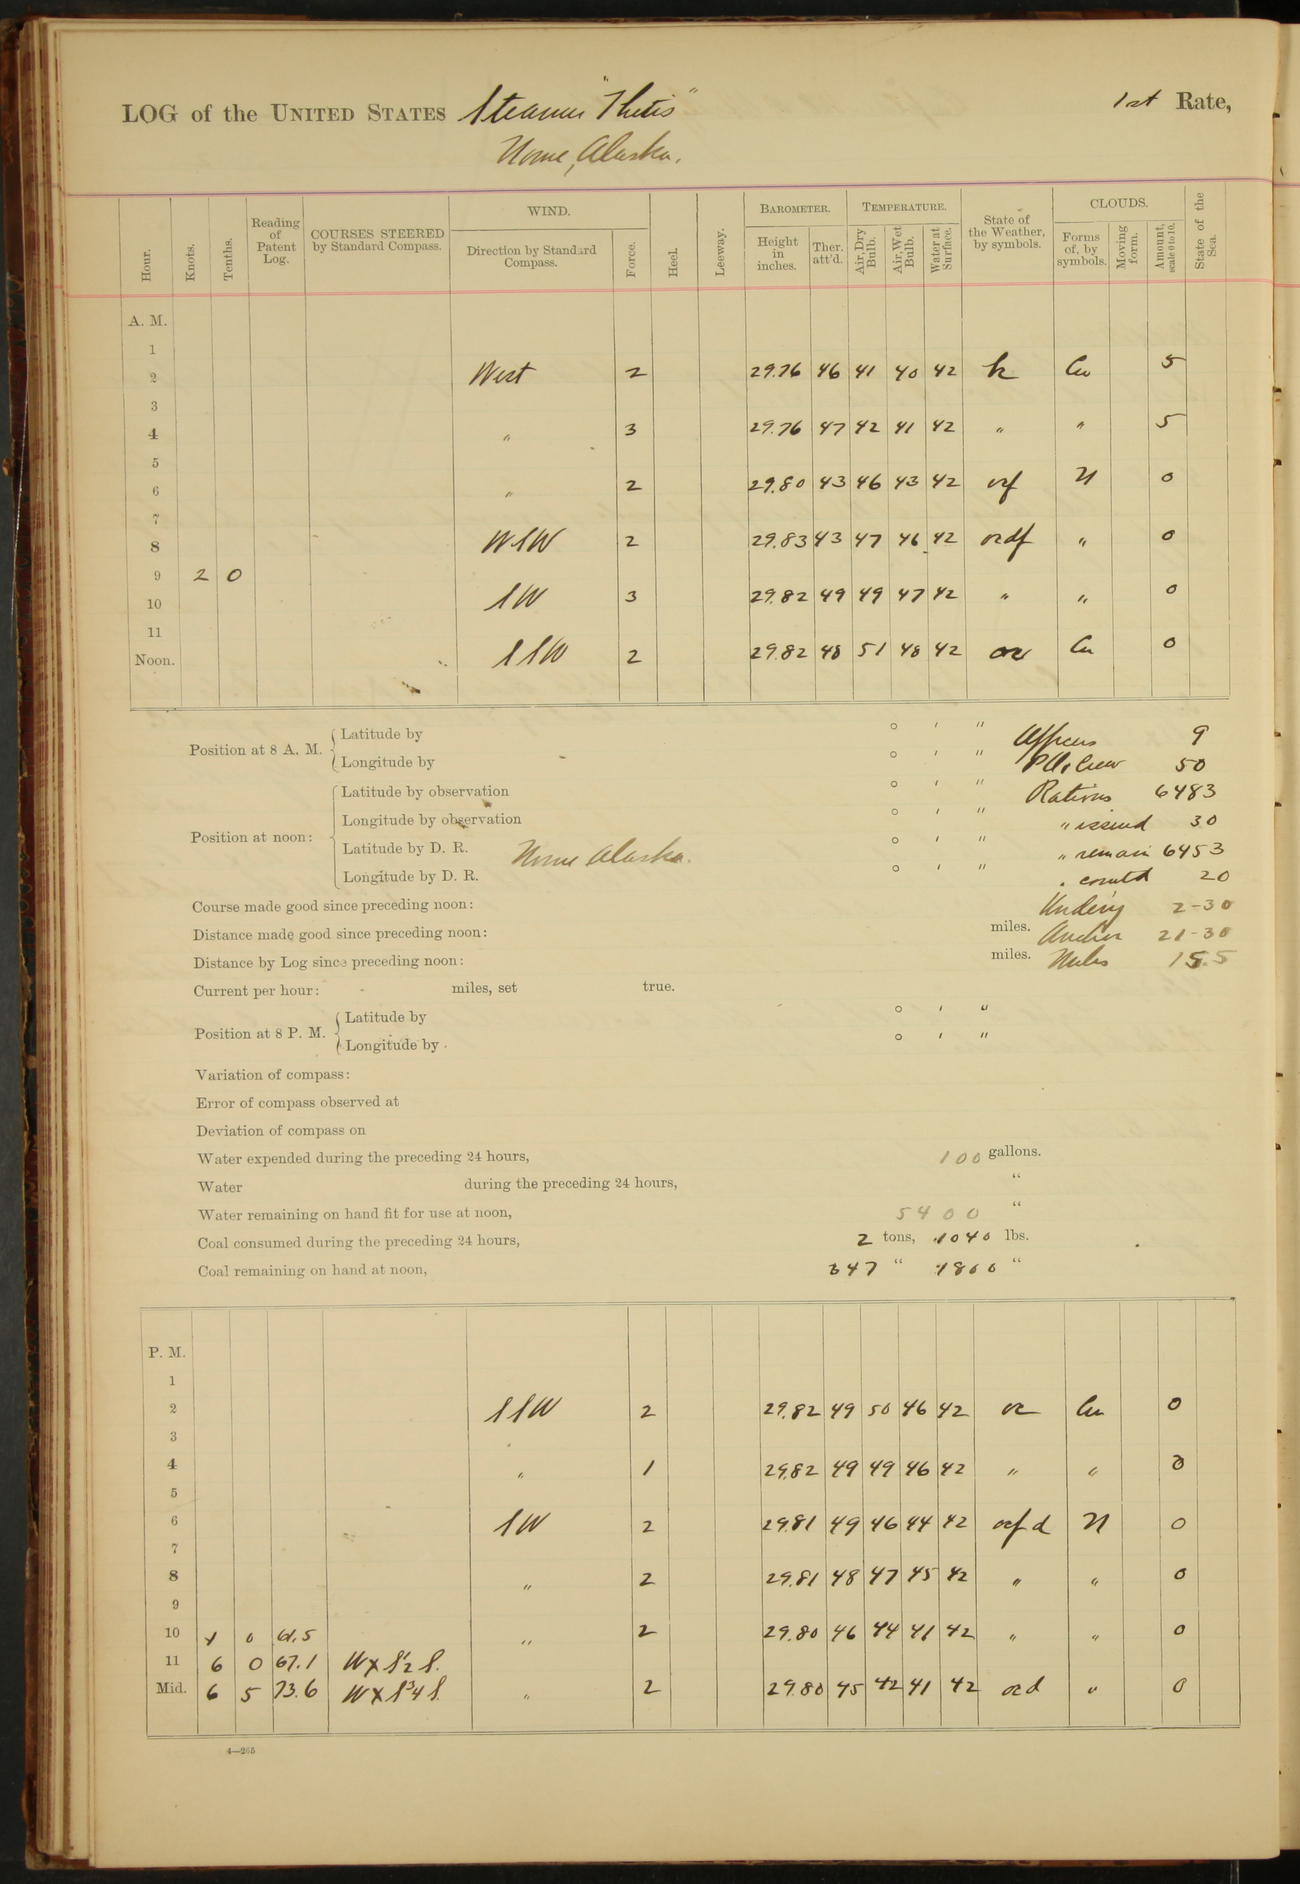 LOG of the UNITED STATES Steamer "Thetis" 1st Rate,
Nome, Alaska.
Hour. Knots. Tenths. Reading of Patent Log. COURSES STEERED by Standard Compass. WIND. Direction by Standard Compass. Force. Heel. Leeway. BAROMETER. Height in inches. Ther. att'd. TEMPERATURE. Air, Dry Bulb. Air, Wet Bulb. Water at Surface. State of the Weather, by symbols. CLOUDS. Forms of, by symbols. Moving form. Amount, scale 0 to 10. State of the Sea.
A. M.
1
2 West 2 29.76 46 41 40 42 Cu 5
3
4 " 3 29.76 47 42 41 42 " " 5
5
6 " 2 29.80 43 46 43 42 ocf N 0
7
8 WSW 2 29.83 43 47 46 42 ocdf " 0
9 2 0
10 SW 3 29.82 49 49 47 42 " " 0
11
Noon. SSW 2 29.82 48 51 48 42 oc Cu 0
Position at 8 A. M. Latitude by ° ' " Officers 9
Longitude by ° ' " Crew 50
Position at noon: Latitude by observation ° ' " Rations 6483
Longitude by observation ° ' " " issued 30
Latitude by D. R. Nome Alaska. ° ' " " remain 6453
Longitude by D. R. ° ' " " comtd 20
Course made good since preceding noon: Underway 2-30
Distance made good since preceding noon: miles. Anchor 21-30
Distance by Log since preceding noon: miles. Miles 15.5
Current per hour: miles, set true.
Position at 8 P. M. Latitude by ° ' "
Longitude by ° ' "
Variation of compass:
Error of compass observed at
Deviation of compass on
Water expended during the preceding 24 hours, 100 gallons.
Water during the preceding 24 hours, "
Water remaining on hand fit for use at noon, 5400 "
Coal consumed during the preceding 24 hours, 2 tons, 1040 lbs.
Coal remaining on hand at noon, 347 " 1800 "
P. M.
1
2 SSW 2 29.82 49 50 46 42 oc Cu 0
3
4 " 1 29.82 49 49 46 42 " " 0
5
6 SW 2 29.81 49 46 44 42 ocfd N 0
7
8 " 2 29.81 48 47 45 42 " " 0
9
10 0 61.5 " 2 29.80 46 44 41 42 " " 0
11 6 0 67.1 WxS½S.
Mid. 6 5 73.6 WxS¾S. " 2 29.80 45 42 41 42 ocd " 0
4—265